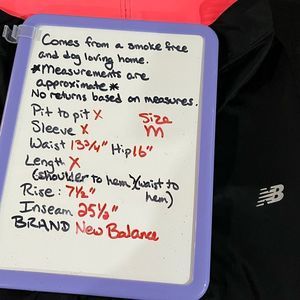 Comes from a smoke free
and dog loving home.
*Measurements are
approximate*
No returns based on measures.
Pit to pit X
Size
M
Sleeve X
Waist 13 3/4" Hip 16"
Length X
(shoulder to hem) (waist to
hem)
Rise: 7 1/2"
Inseam 25 1/2"
BRAND New Balance
NB